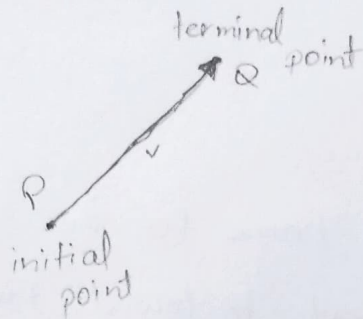 terminal
point
Q
v
P
initial
point